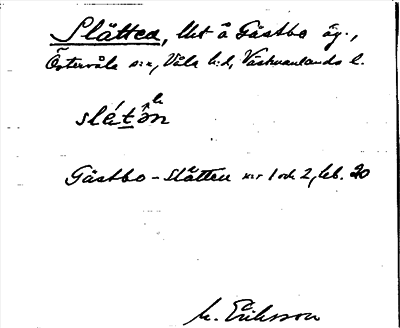 Slätten, lht å Gästbo äg.,
Östervåla sn, Våla hd, Västmanlands l.
slétὸn
Gästbo-Slätten nr 1 och 2, leb. 20
M. Eriksson